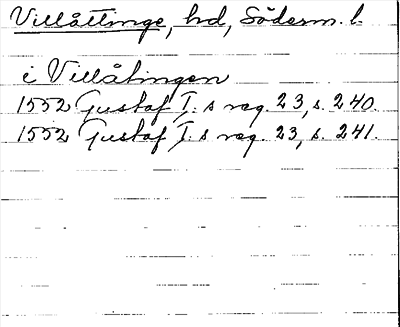 Villåttinge, hd, Söderm. l.
i Villåtingen
1552 Gustaf I:s reg. 23, s. 240.
1552 Gustaf I:s reg. 23, s. 241.